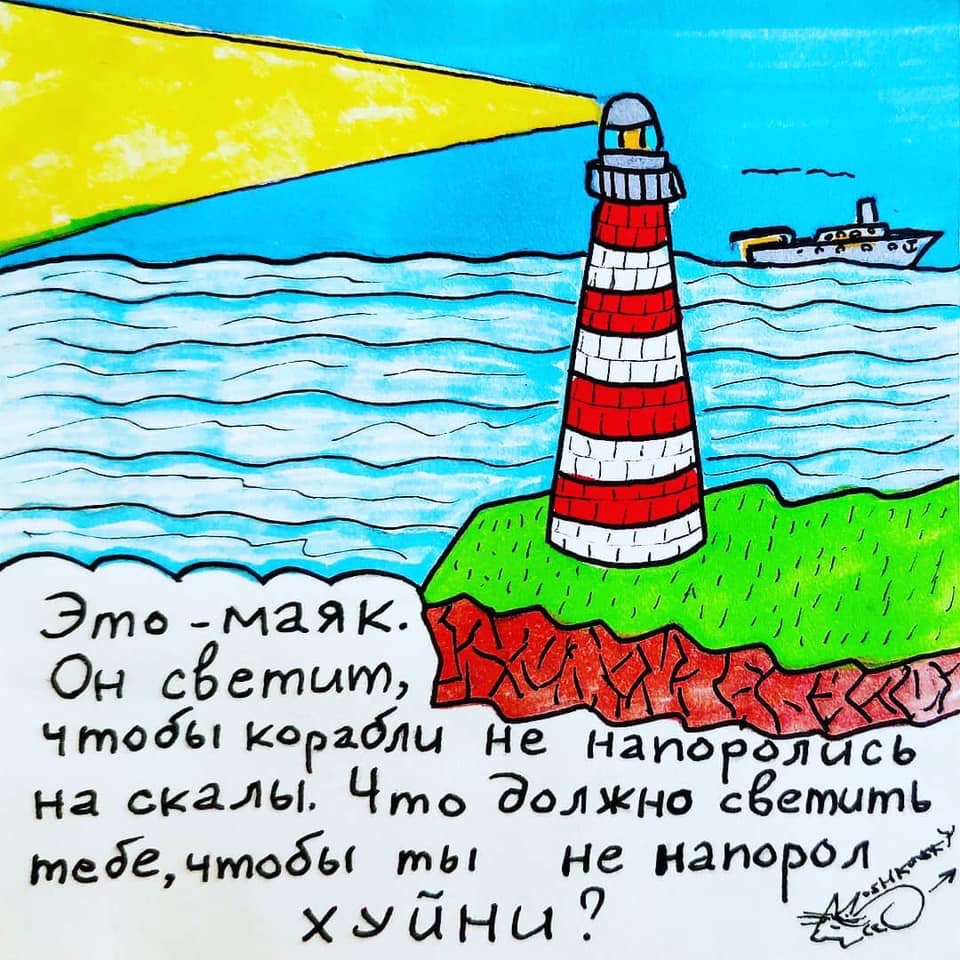 Это - маяк.
Он светит,
чтобы корабли не напоролись
на скалы. Что должно светить
тебе, чтобы ты не напорол
хуйни?